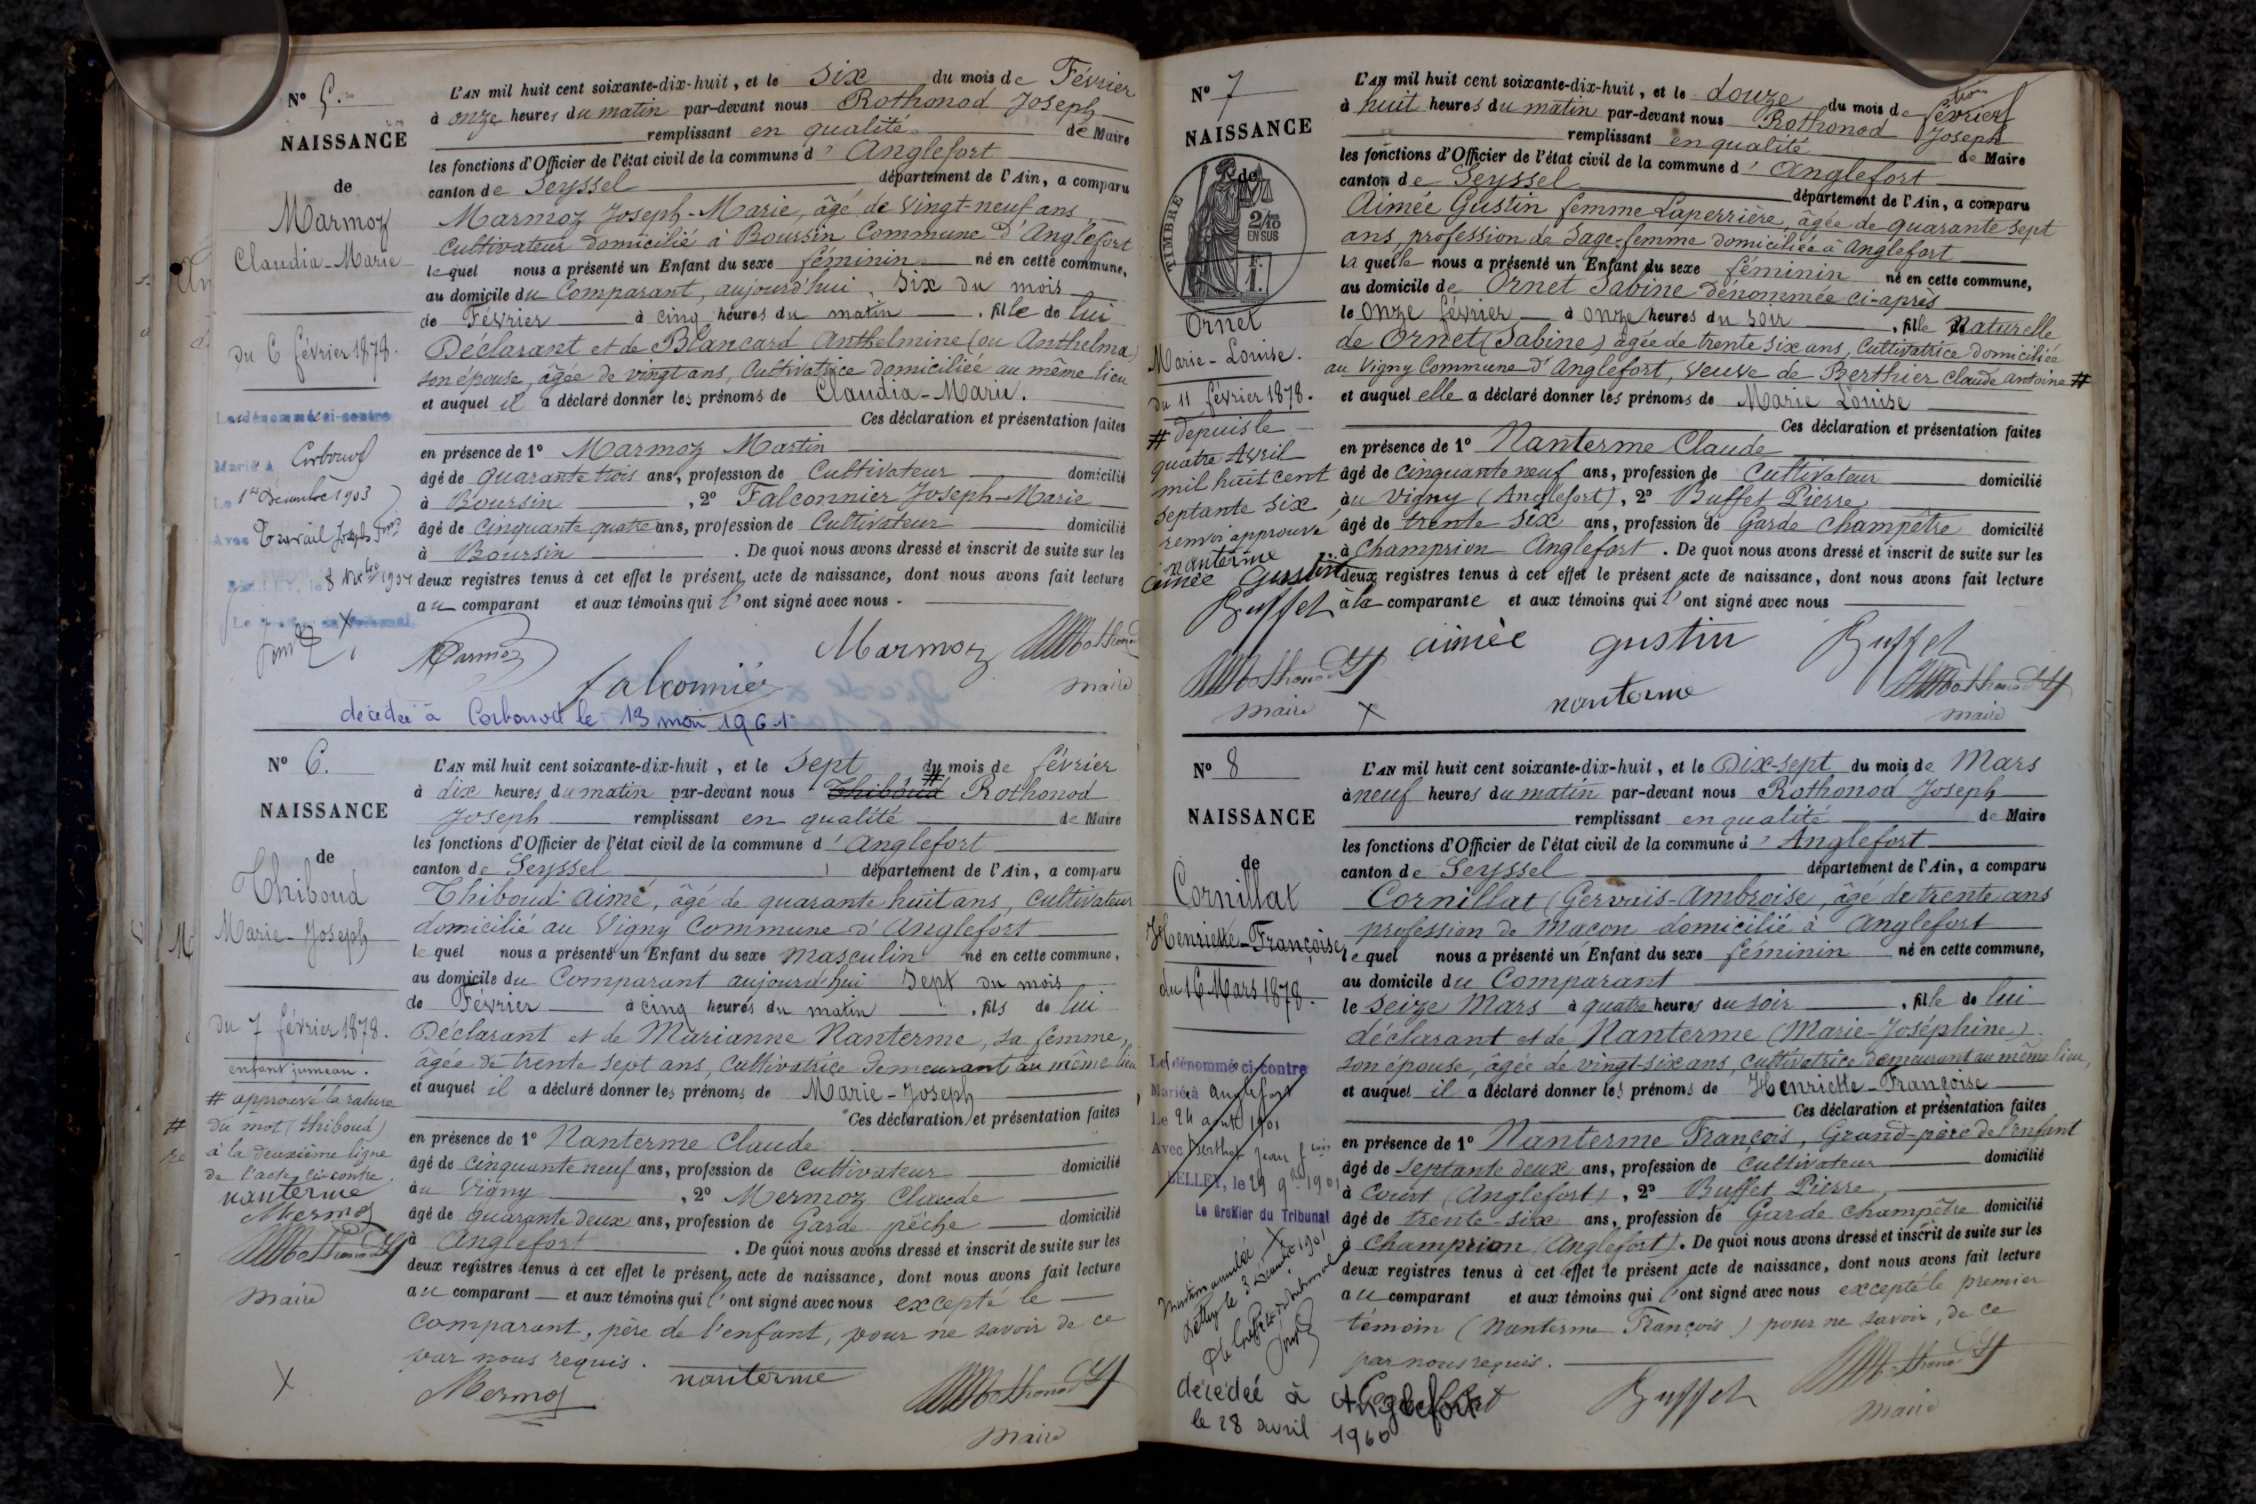 N° 5.
NAISSANCE
de
Marmoz
Claudia-Marie
du 6 février 1878.
Le dénommé ci-contre
Marié à Corbonod
Le 1er Décembre 1903
Avec Travail Joseph
le 8 Xbre 1904
L'AN mil huit cent soixante-dix-huit, et le six du mois de Février
à onze heures du matin par-devant nous Rothonod Joseph
remplissant en qualité de Maire
les fonctions d'Officier de l'état civil de la commune d'Anglefort
canton de Seyssel département de l'Ain, a comparu
Marmoz Joseph-Marie, âgé de vingt-neuf ans,
Cultivateur domicilié à Boursin Commune d'Anglefort
lequel nous a présenté un Enfant du sexe féminin né en cette commune,
au domicile du Comparant, aujourd'hui, six du mois
de Février à cinq heures du matin, fille de lui
Déclarant et de Blancard Anthelmine (ou Anthelma)
son épouse, âgée de vingt ans, Cultivatrice domiciliée au même lieu
et auquel il a déclaré donner les prénoms de Claudia-Marie.
Ces déclaration et présentation faites
en présence de 1° Marmoz Martin
âgé de quarante trois ans, profession de Cultivateur domicilié
à Boursin, 2° Falconnier Joseph-Marie
âgé de Cinquante quatre ans, profession de Cultivateur domicilié
à Boursin. De quoi nous avons dressé et inscrit de suite sur les
deux registres tenus à cet effet le présent acte de naissance, dont nous avons fait lecture
au comparant et aux témoins qui l'ont signé avec nous.
Marmoz
Marmoz Rothonod
falconnier
maire
décédée à Corbonod le 13 mai 1961
N° 6.
NAISSANCE
de
Thiboud
Marie-Joseph
du 7 février 1878.
enfant jumeau.
# approuvé la rature
du mot (thiboud)
à la deuxième ligne
de l'acte ci-contre.
nanterme
Mermoz
Rothonod
maire
L'AN mil huit cent soixante-dix-huit, et le sept du mois de février
à dix heures du matin par-devant nous # Thiboud Rothonod
Joseph remplissant en qualité de Maire
les fonctions d'Officier de l'état civil de la commune d'Anglefort
canton de Seyssel département de l'Ain, a comparu
Thiboud Aimé, âgé de quarante huit ans, cultivateur
domicilié au Vigny Commune d'Anglefort
lequel nous a présenté un Enfant du sexe masculin né en cette commune,
au domicile du Comparant aujourd'hui sept du mois
de Février à cinq heures du matin, fils de lui
Déclarant et de Marianne Nanterme, sa femme,
âgée de trente sept ans, cultivatrice demeurant au même lieu
et auquel il a déclaré donner les prénoms de Marie-Joseph
Ces déclaration et présentation faites
en présence de 1° Nanterme Claude
âgé de cinquante neuf ans, profession de cultivateur domicilié
au Vigny, 2° Mermoz Claude
âgé de quarante deux ans, profession de Garde pêche domicilié
à Anglefort. De quoi nous avons dressé et inscrit de suite sur les
deux registres tenus à cet effet le présent acte de naissance, dont nous avons fait lecture
au comparant et aux témoins qui l'ont signé avec nous excepté le
Comparant, père de l'enfant, pour ne savoir de ce
par nous requis.
nanterme
Mermoz Rothonod
maire
N° 7
NAISSANCE
de
TIMBRE
2/10
EN SUS
F.
1.
Ornet
Marie-Louise.
du 11 février 1878.
# depuis le
quatre Avril
mil huit cent
septante six
renvoi approuvé
nanterme
aimée Gustin
Buffet
Rothonod
maire
L'AN mil huit cent soixante-dix-huit, et le douze du mois de février
à huit heures du matin par-devant nous Rothonod Joseph
remplissant en qualité de Maire
les fonctions d'Officier de l'état civil de la commune d'Anglefort
canton de Seyssel département de l'Ain, a comparu
Aimée Gustin femme Laperrière, âgée de quarante sept
ans, profession de Sage-femme domiciliée à Anglefort
laquelle nous a présenté un Enfant du sexe féminin né en cette commune,
au domicile de Ornet Sabine dénommée ci-après
le onze février à onze heures du soir, fille Naturelle
de Ornet (Sabine) âgée de trente six ans, Cultivatrice domiciliée
au Vigny Commune d'Anglefort, veuve de Berthier Claude Antoine #
et auquel elle a déclaré donner les prénoms de Marie Louise
Ces déclaration et présentation faites
en présence de 1° Nanterme Claude
âgé de cinquante neuf ans, profession de Cultivateur domicilié
au Vigny (Anglefort), 2° Buffet Pierre
âgé de trente six ans, profession de Garde champêtre domicilié
à Champrion Anglefort. De quoi nous avons dressé et inscrit de suite sur les
deux registres tenus à cet effet le présent acte de naissance, dont nous avons fait lecture
à la comparante et aux témoins qui l'ont signé avec nous
aimée gustin Buffet
nanterme Rothonod
maire
N° 8
NAISSANCE
de
Cornillat
Henriette-Françoise
du 16 Mars 1878.
Le dénommé ci-contre
Marié à Anglefort
Le 24 août 1901
Avec Berthet Jean
BELLEY, le 29 9bre 1901
Le Greffier du Tribunal
Mention annulée
Belley le 3 Décembre 1901
décédée à Anglefort
le 28 avril 1960
L'AN mil huit cent soixante-dix-huit, et le Dix-sept du mois de Mars
à neuf heures du matin par-devant nous Rothonod Joseph
remplissant en qualité de Maire
les fonctions d'Officier de l'état civil de la commune d'Anglefort
canton de Seyssel département de l'Ain, a comparu
Cornillat (Gervais-Ambroise, âgé de trente ans
profession de Maçon domicilié à Anglefort
lequel nous a présenté un Enfant du sexe féminin né en cette commune,
au domicile du Comparant
le seize Mars à quatre heures du soir, fille de lui
déclarant et de Nanterme (Marie-Joséphine)
son épouse, âgée de vingt-six ans, cultivatrice demeurant au même lieu,
et auquel il a déclaré donner les prénoms de Henriette-Françoise
Ces déclaration et présentation faites
en présence de 1° Nanterme François, Grand-père de l'enfant
âgé de septante deux ans, profession de Cultivateur domicilié
à Court (Anglefort), 2° Buffet Pierre
âgé de trente-six ans, profession de Garde Champêtre domicilié
à Champrion (Anglefort). De quoi nous avons dressé et inscrit de suite sur les
deux registres tenus à cet effet le présent acte de naissance, dont nous avons fait lecture
au comparant et aux témoins qui l'ont signé avec nous excepté le premier
témoin (Nanterme François) pour ne savoir, de ce
par nous requis.
Buffet Rothonod
maire